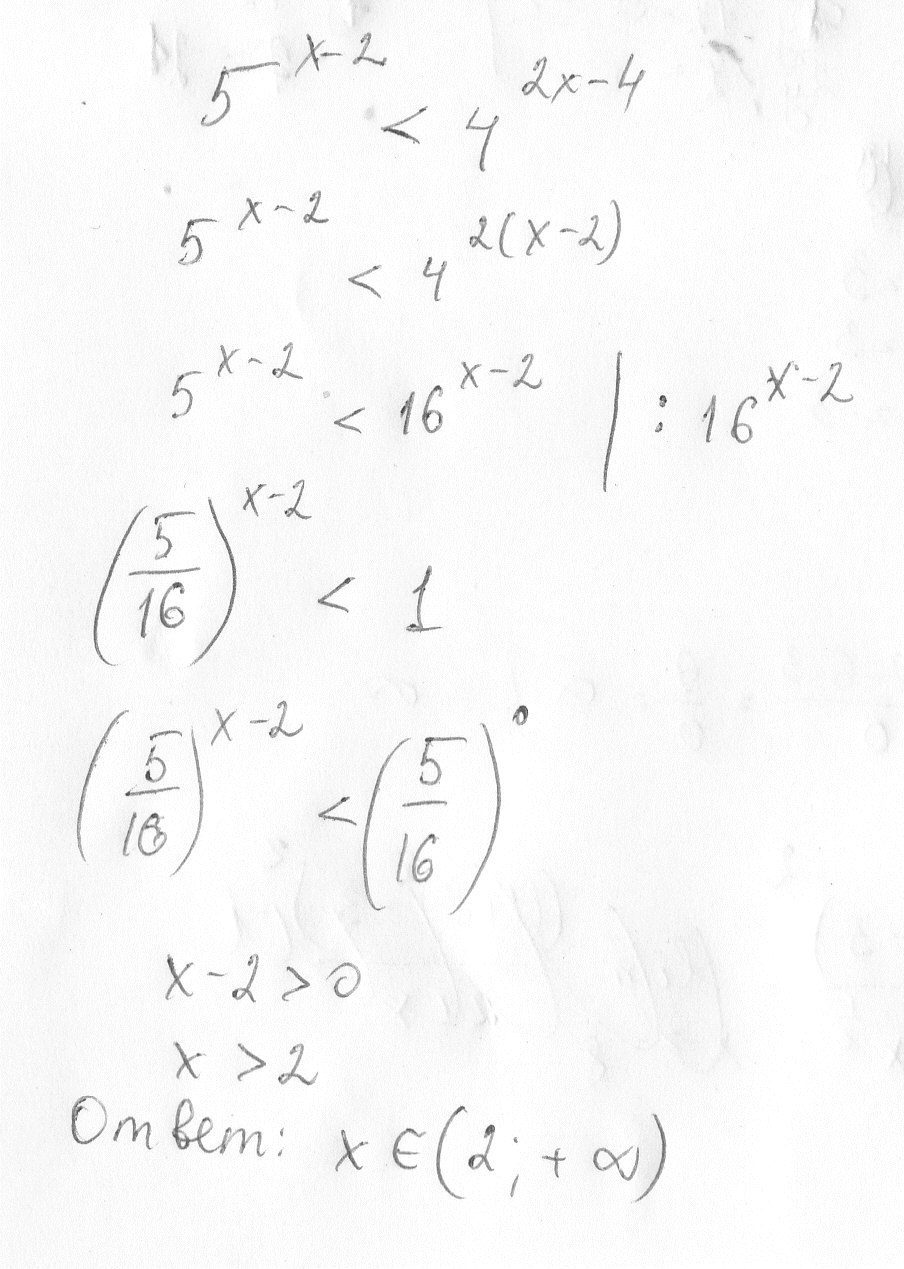 5^{x-2} < 4^{2x-4}
5^{x-2} < 4^{2(x-2)}
5^{x-2} < 16^{x-2} | : 16^{x-2}
(5/16)^{x-2} < 1
(5/16)^{x-2} < (5/16)^0
x-2>0
x>2
Ответ: x∈(2;+∞)